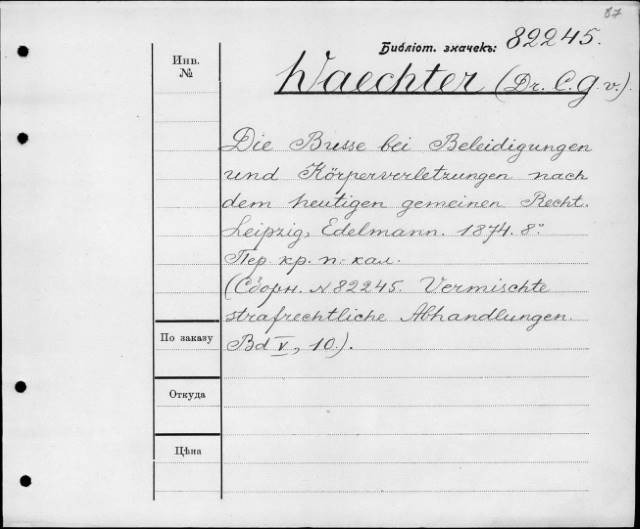 87
Библіот. значекъ: 82245.
Инв.
№
Waechter (Dr. C. G. v.).
Die Busse bei Beleidigungen
und Körperverletzungen nach
dem heutigen gemeinen Recht.
Leipzig, Edelmann. 1874. 8º.
Пер. кр. п. кал.
(Сборн. N 82245. Vermischte
strafrechtliche Abhandlungen.
Bd V, 10.).
По заказу
Откуда
Цѣна